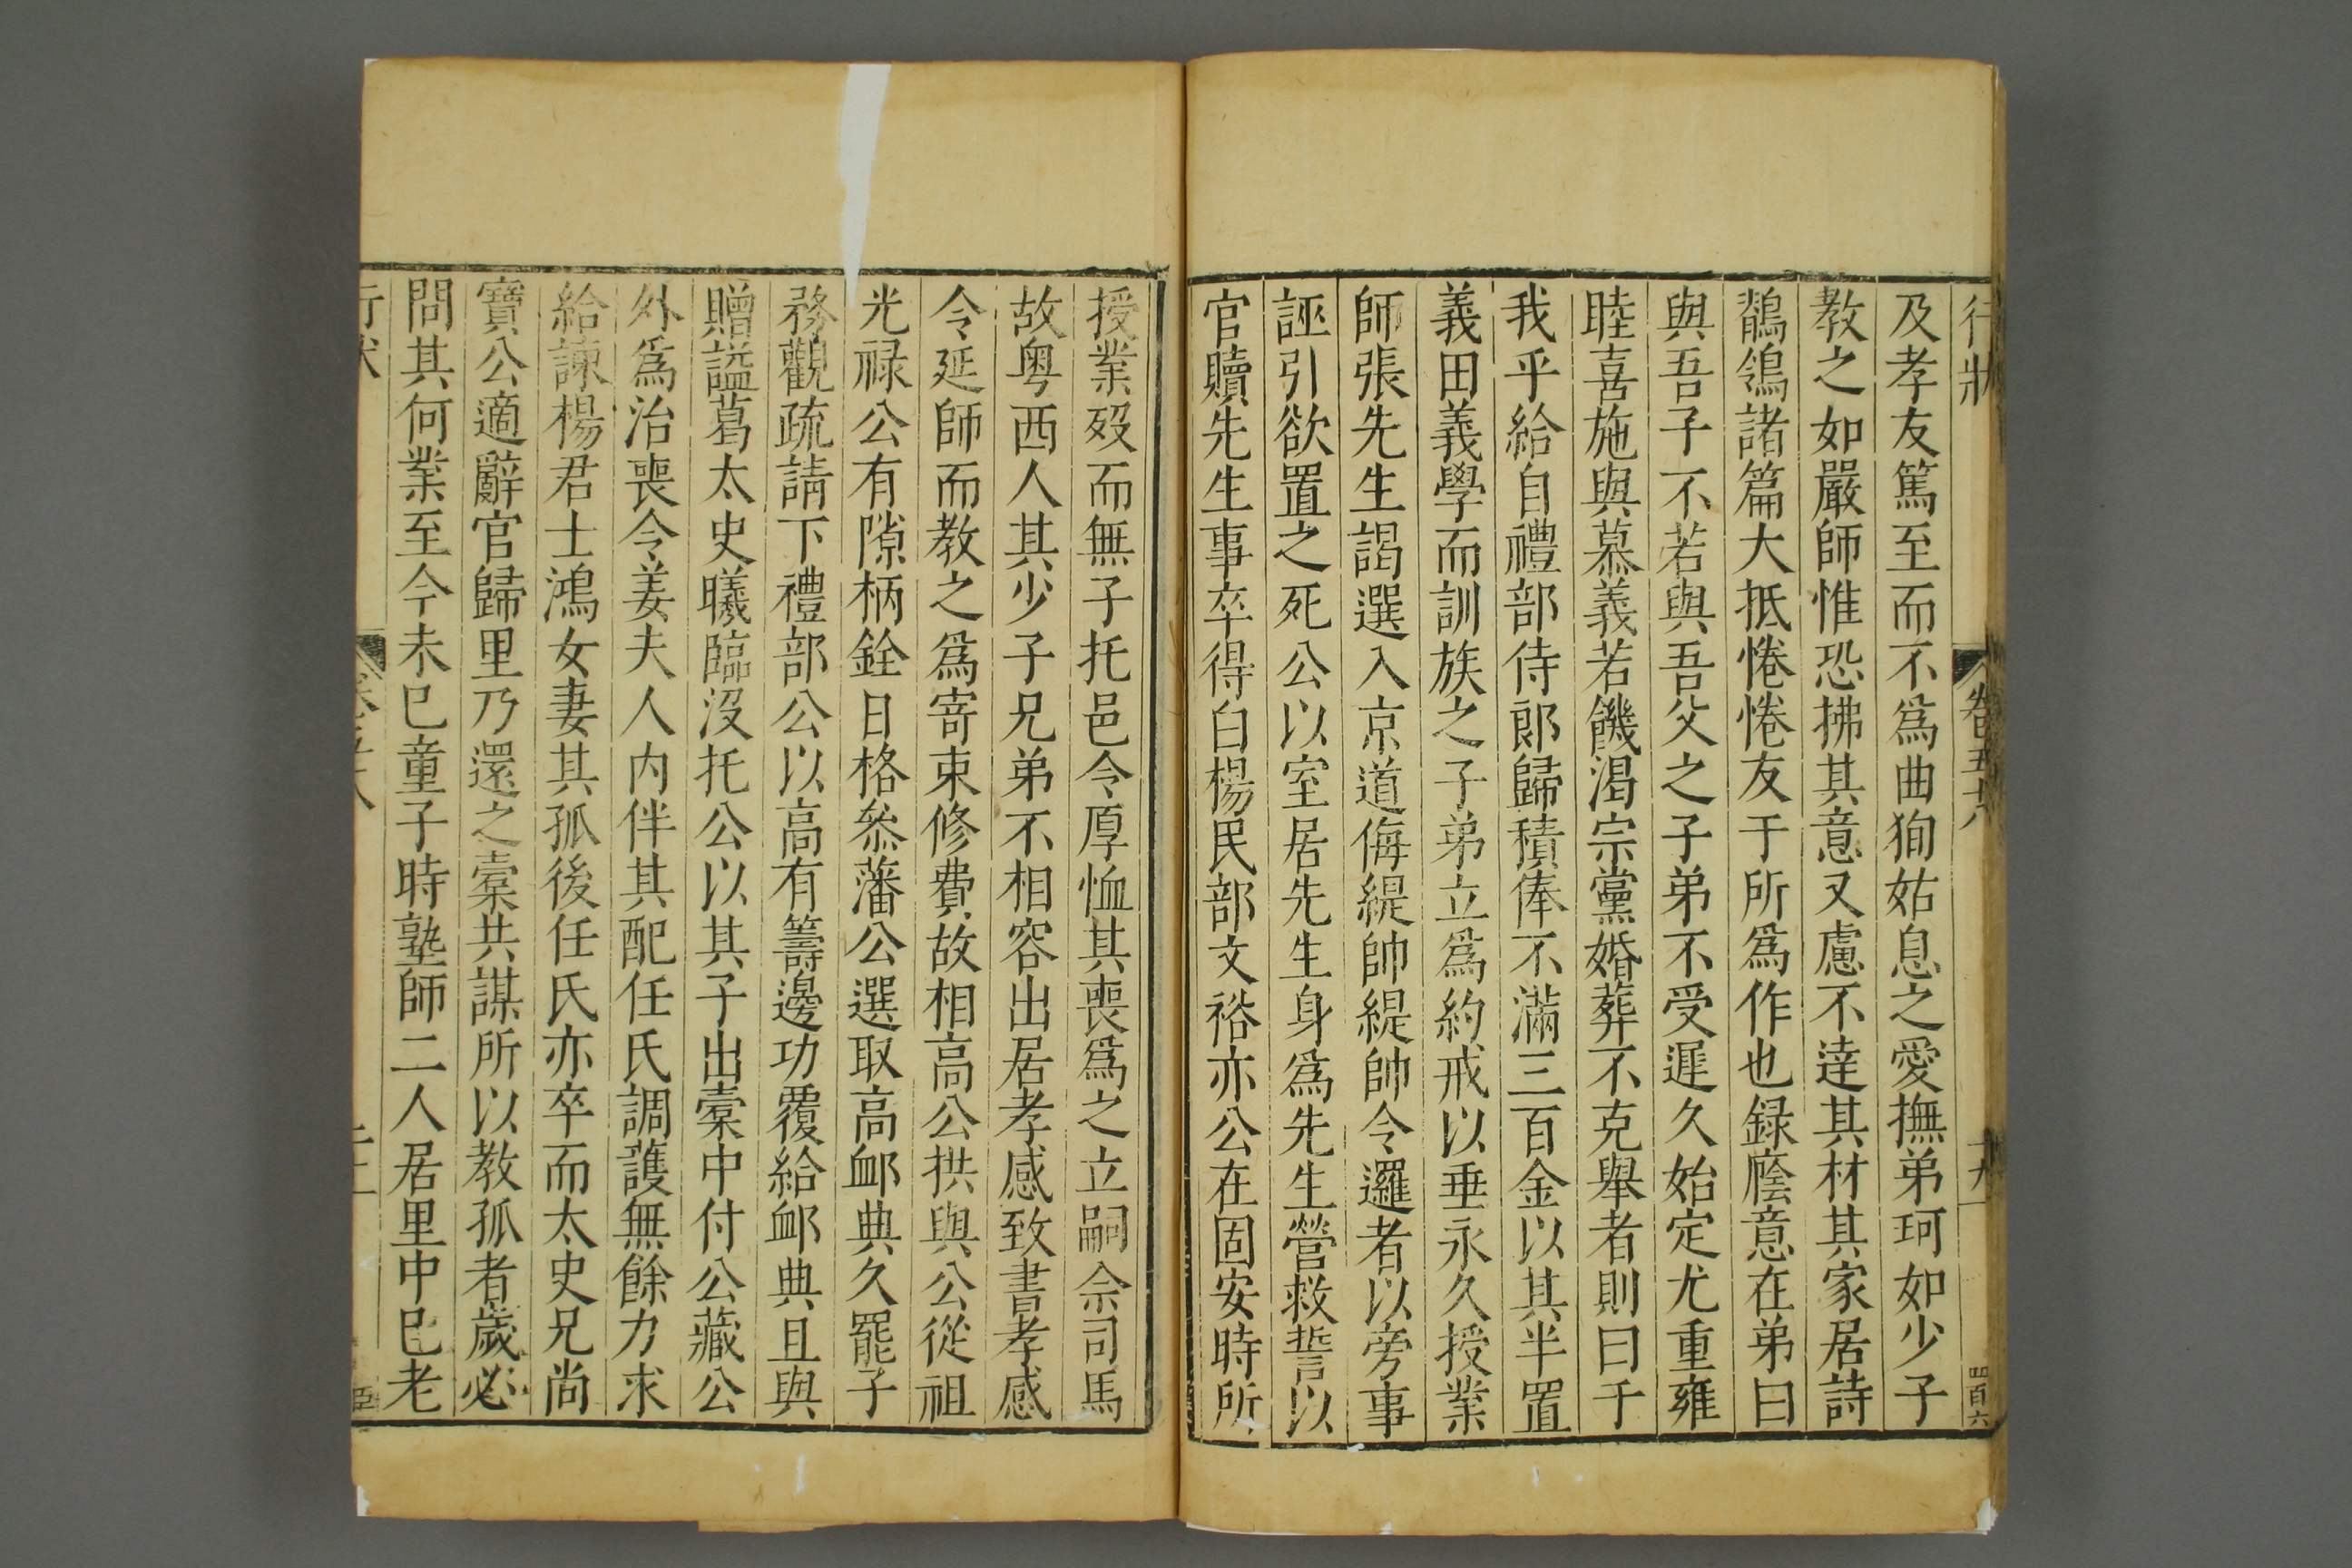 行狀 卷五八 十九 四百六
及孝友篤至而不爲曲狥姑息之愛撫弟珂如少子
教之如嚴師惟恐拂其意又慮不達其材其家居詩
鶺鴒諸篇大抵惓惓友于所爲作也録廕意在弟曰
與吾子不若與吾父之子弟不受遲久始定尤重雍
睦喜施與慕義若饑渴宗黨婚葬不克舉者則曰于
我乎給自禮部侍郎歸積俸不滿三百金以其半置
義田義學而訓族之子弟立爲約戒以垂永久授業
師張先生謁選入京道侮緹帥緹帥令邏者以旁事
誣引欲置之死公以室居先生身爲先生營救誓以
官贖先生事卒得白楊民部文裕亦公在固安時所
授業殁而無子托邑令厚恤其喪爲之立嗣佘司馬
故粤西人其少子兄弟不相容出居孝感致書孝感
令延師而教之爲寄束修費故相高公拱與公從祖
光禄公有隙柄銓日格叅藩公選取高䘏典久罷子
務觀疏請下禮部公以高有籌邊功覆給䘏典且與
贈諡葛太史曦臨没托公以其子出槖中付公藏公
外爲治喪令姜夫人内伴其配任氏調護無餘力求
給諫楊君士鴻女妻其孤後任氏亦卒而太史兄尚
寶公適辭官歸里乃還之槖共謀所以教孤者歲必
問其何業至今未已童子時塾師二人居里中已老
行狀